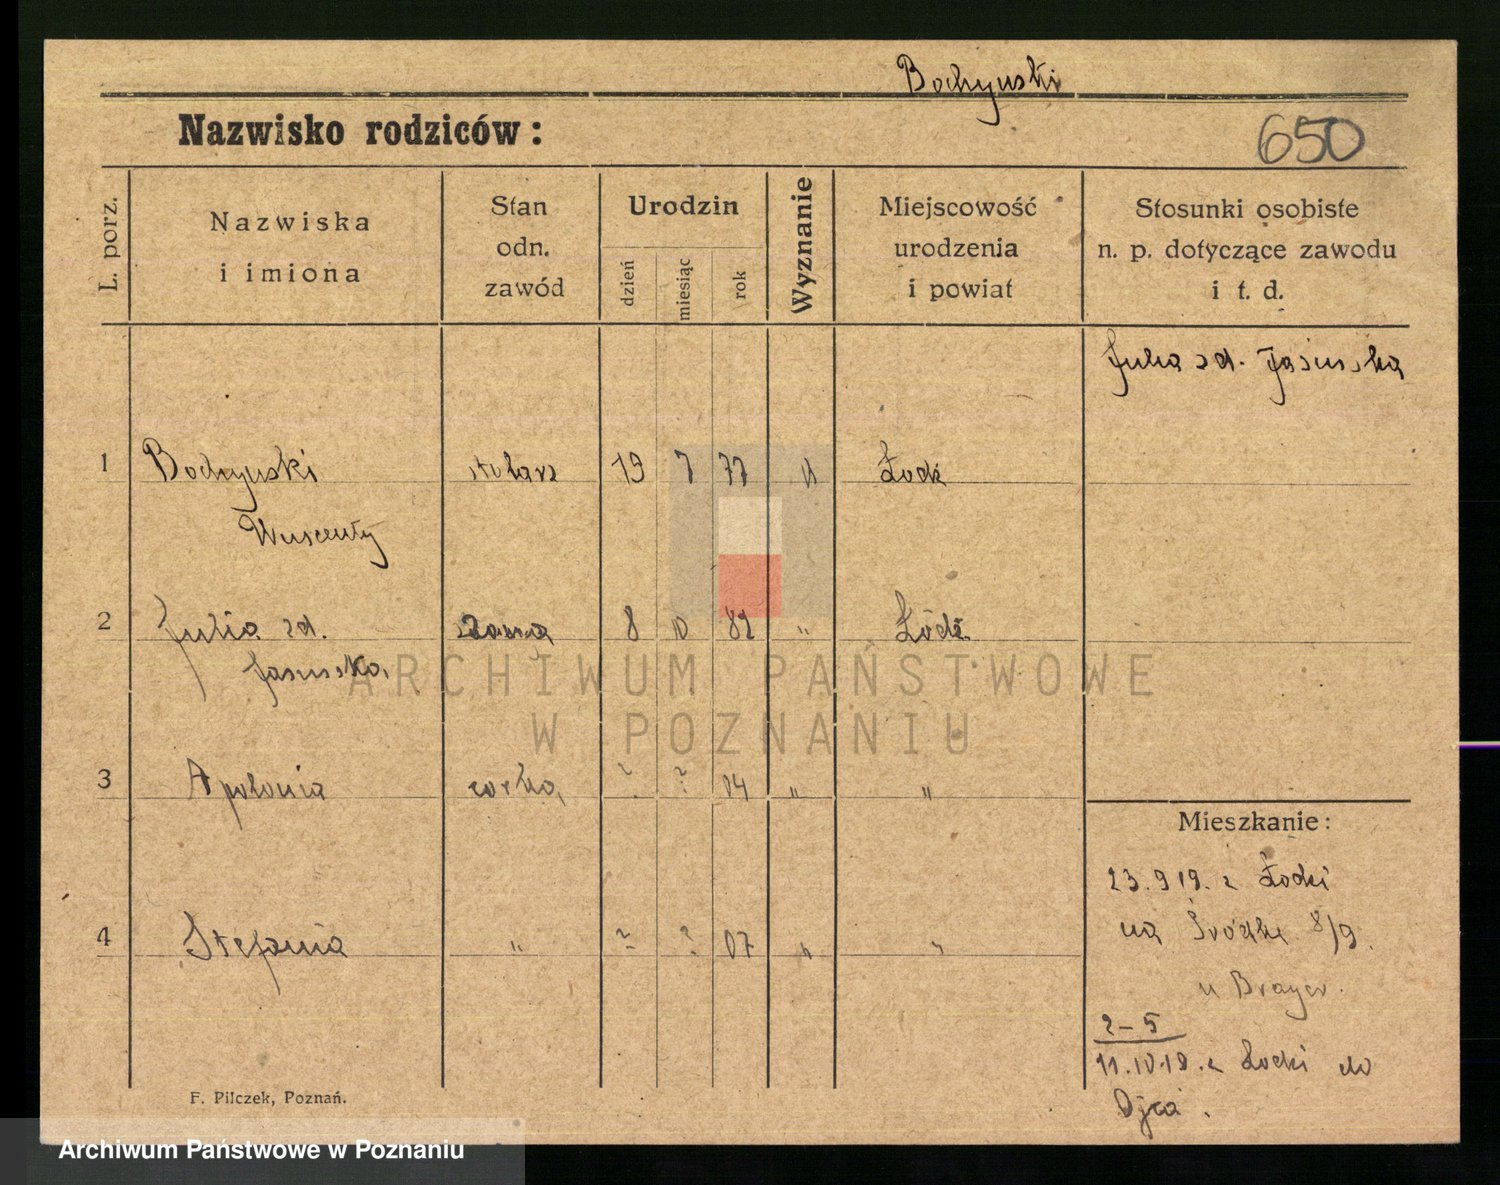 Bochyński
Nazwisko rodziców:
650
L. porz.
Nazwiska
i imiona
Stan
odn.
zawód
Urodzin
dzień
miesiąc
rok
Wyznanie
Miejscowość
urodzenia
i powiat
Stosunki osobiste
n. p. dotyczące zawodu
i t. d.
Julia zd. Jasińska
1 Bochyński stolarz 19 7 77 Łodź
Wincenty
2 Julia zd. żona 8 10 82 " Łódź
Jasińska
3 Apolonia córka ? ? 04 " "
4 Stefania " ? ? 07 " "
Mieszkanie:
23.9 19. z Łodzi
na Śródkę 8/9.
u Brayer.
2-5
11.10.19. z Łodzi do
Ojca.
F. Pilczek, Poznań.
ARCHIWUM PAŃSTWOWE
W POZNANIU
Archiwum Państwowe w Poznaniu